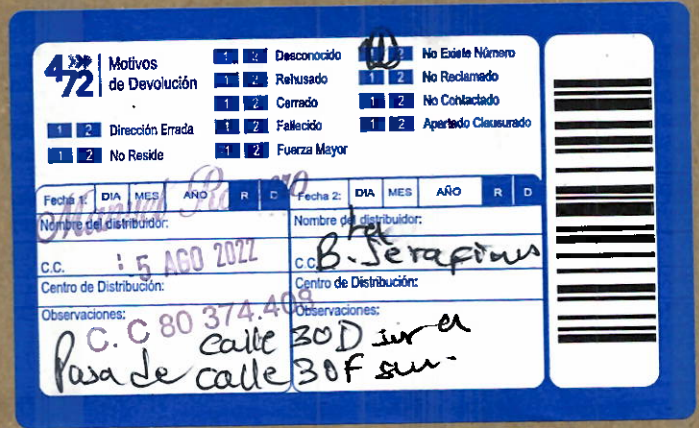 472 Motivos de Devolución
1 2 Dirección Errada
1 2 No Reside
1 2 Desconocido
1 2 Rehusado
1 2 Cerrado
1 2 Fallecido
1 2 Fuerza Mayor
1 2 No Existe Número
1 2 No Reclamado
1 2 No Contactado
1 2 Apartado Clausurado
Fecha 1: DIA MES AÑO R D
Manuel
Nombre del distribuidor:
C.C.
5 AGO 2022
Centro de Distribución:
Observaciones:
C. C 80 374.408
Fecha 2: DIA MES AÑO R D
Nombre del distribuidor:
C.C.
B.
Centro de Distribución:
Observaciones:
Pasa de calle 30D sur a
calle 30F sur.